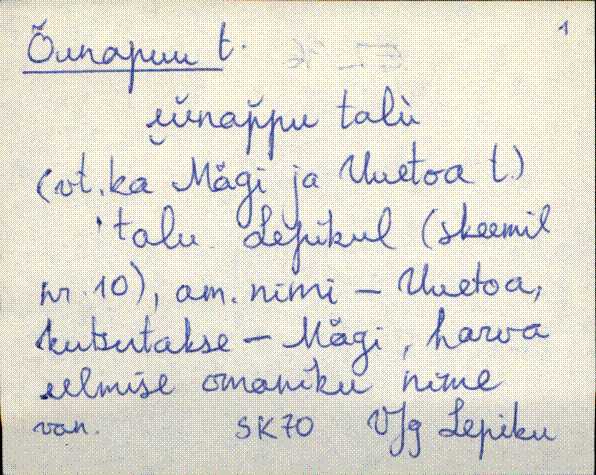 1
Õunapuu t.
ŭŭnappu talù
(vt. ka Mägi ja Uuetoa t.)
talu Lepikul (skeemil
nr. 10), am. nimi – Uuetoa,
kutsutakse – Mägi, harva
eelmise omaniku nime
van. SK70 V/g Lepiku